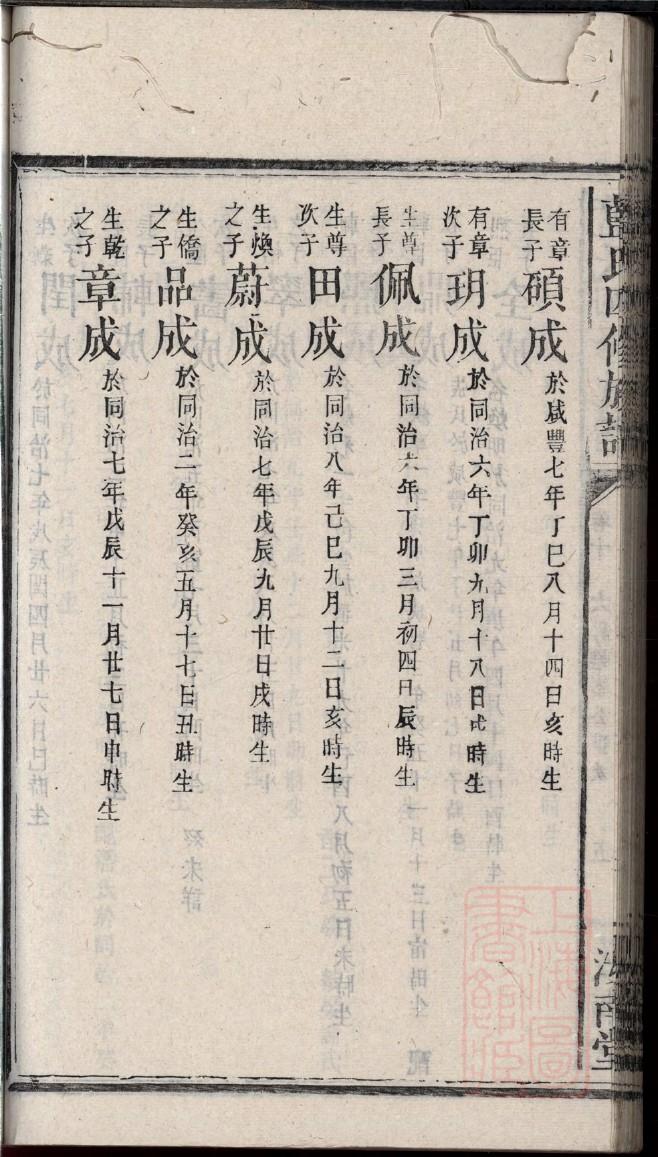 有章長子碩成於咸豐七年丁巳八月十四日亥時生
有章次子玥成於同治六年丁卯九月十八日戌時生
生尊長子佩成於同治六年丁卯三月初四日辰時生
生尊次子田成於同治八年己巳九月十二日亥時生
生煥之子蔚成於同治七年戊辰九月廿日戌時生
生僑之子品成於同治二年癸亥五月十七日丑時生
生乾之子章成於同治七年戊辰十一月廿七日申時生
藍氏四修族譜
上海圖書館藏